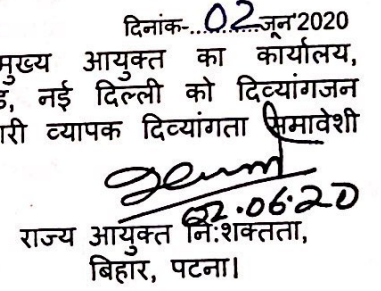 दिनांक-..02..जून'2020
मुख्य आयुक्त का कार्यालय,
नई दिल्ली को दिव्यांगजन
व्यापक दिव्यांगता समावेशी
02.06.20
राज्य आयुक्त नि:शक्तता,
बिहार, पटना।